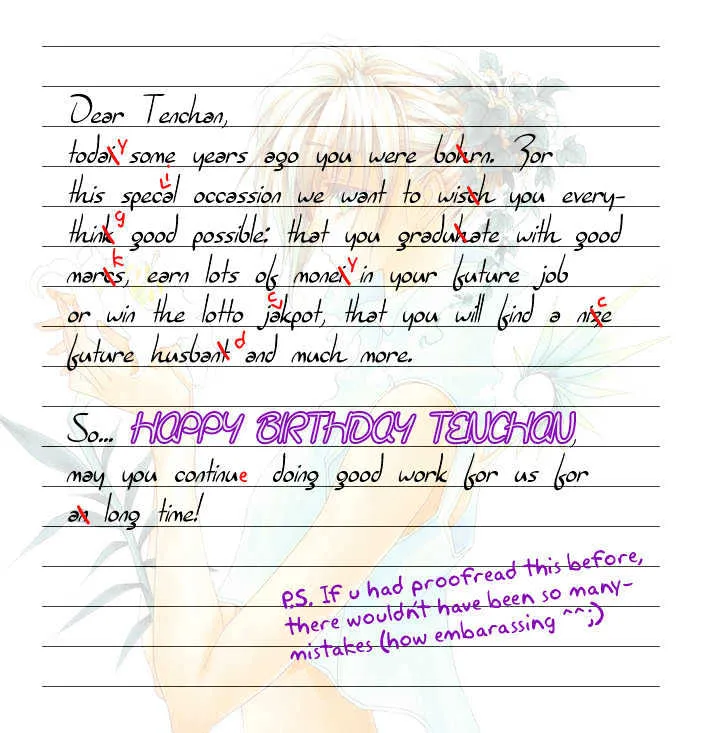 Dear Tenchan,
today some years ago you were born. For
this special occassion we want to wish you every-
thing good possible: that you graduate with good
marks, earn lots of money in your future job
or win the lotto jackpot, that you will find a nice
future husband and much more.
So... HAPPY BIRTHDAY TENCHAN,
may you continue doing good work for us for
a long time!
P.S. If u had proofread this before,
there wouldn't have been so many-
mistakes (how embarassing ^^;)